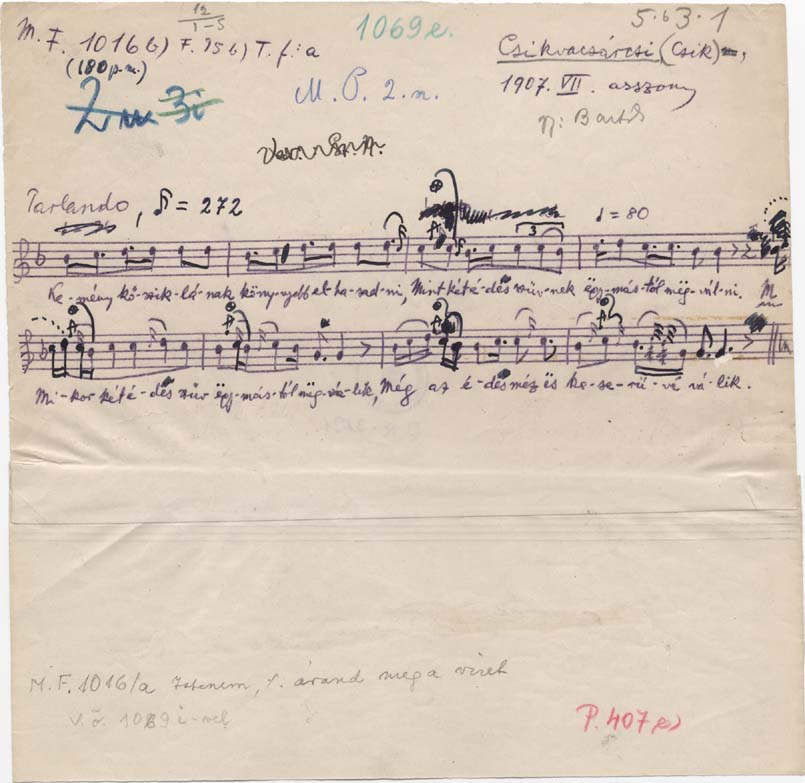 12
1-5
5.63.1
M. F. 1016 b) F. 75 b) T. f.: a
1069 e.
Csikvacsárcsi, (Csik),
(180 p.m.)
1907. VII. asszony
M. P. 2. n.
Gy: Bartók
Parlando, ♪ = 272
3
♩ = 80
Ke-mény kő-szik-lá-nak köny-nyebb el-ha-sad-ni, Mint két é-dös szüv-nek ëgy-más-tól mëg-vál-ni.
Mi-kor két é-dös szüv ëgy-más-tól mëg-vá-lik, Még az é-dös méz is ke-se-rü-vé vá-lik.
M. F. 1016/a Istenem, árand meg a vizet
V. ö. 1069 i-vel
P. 407 e)